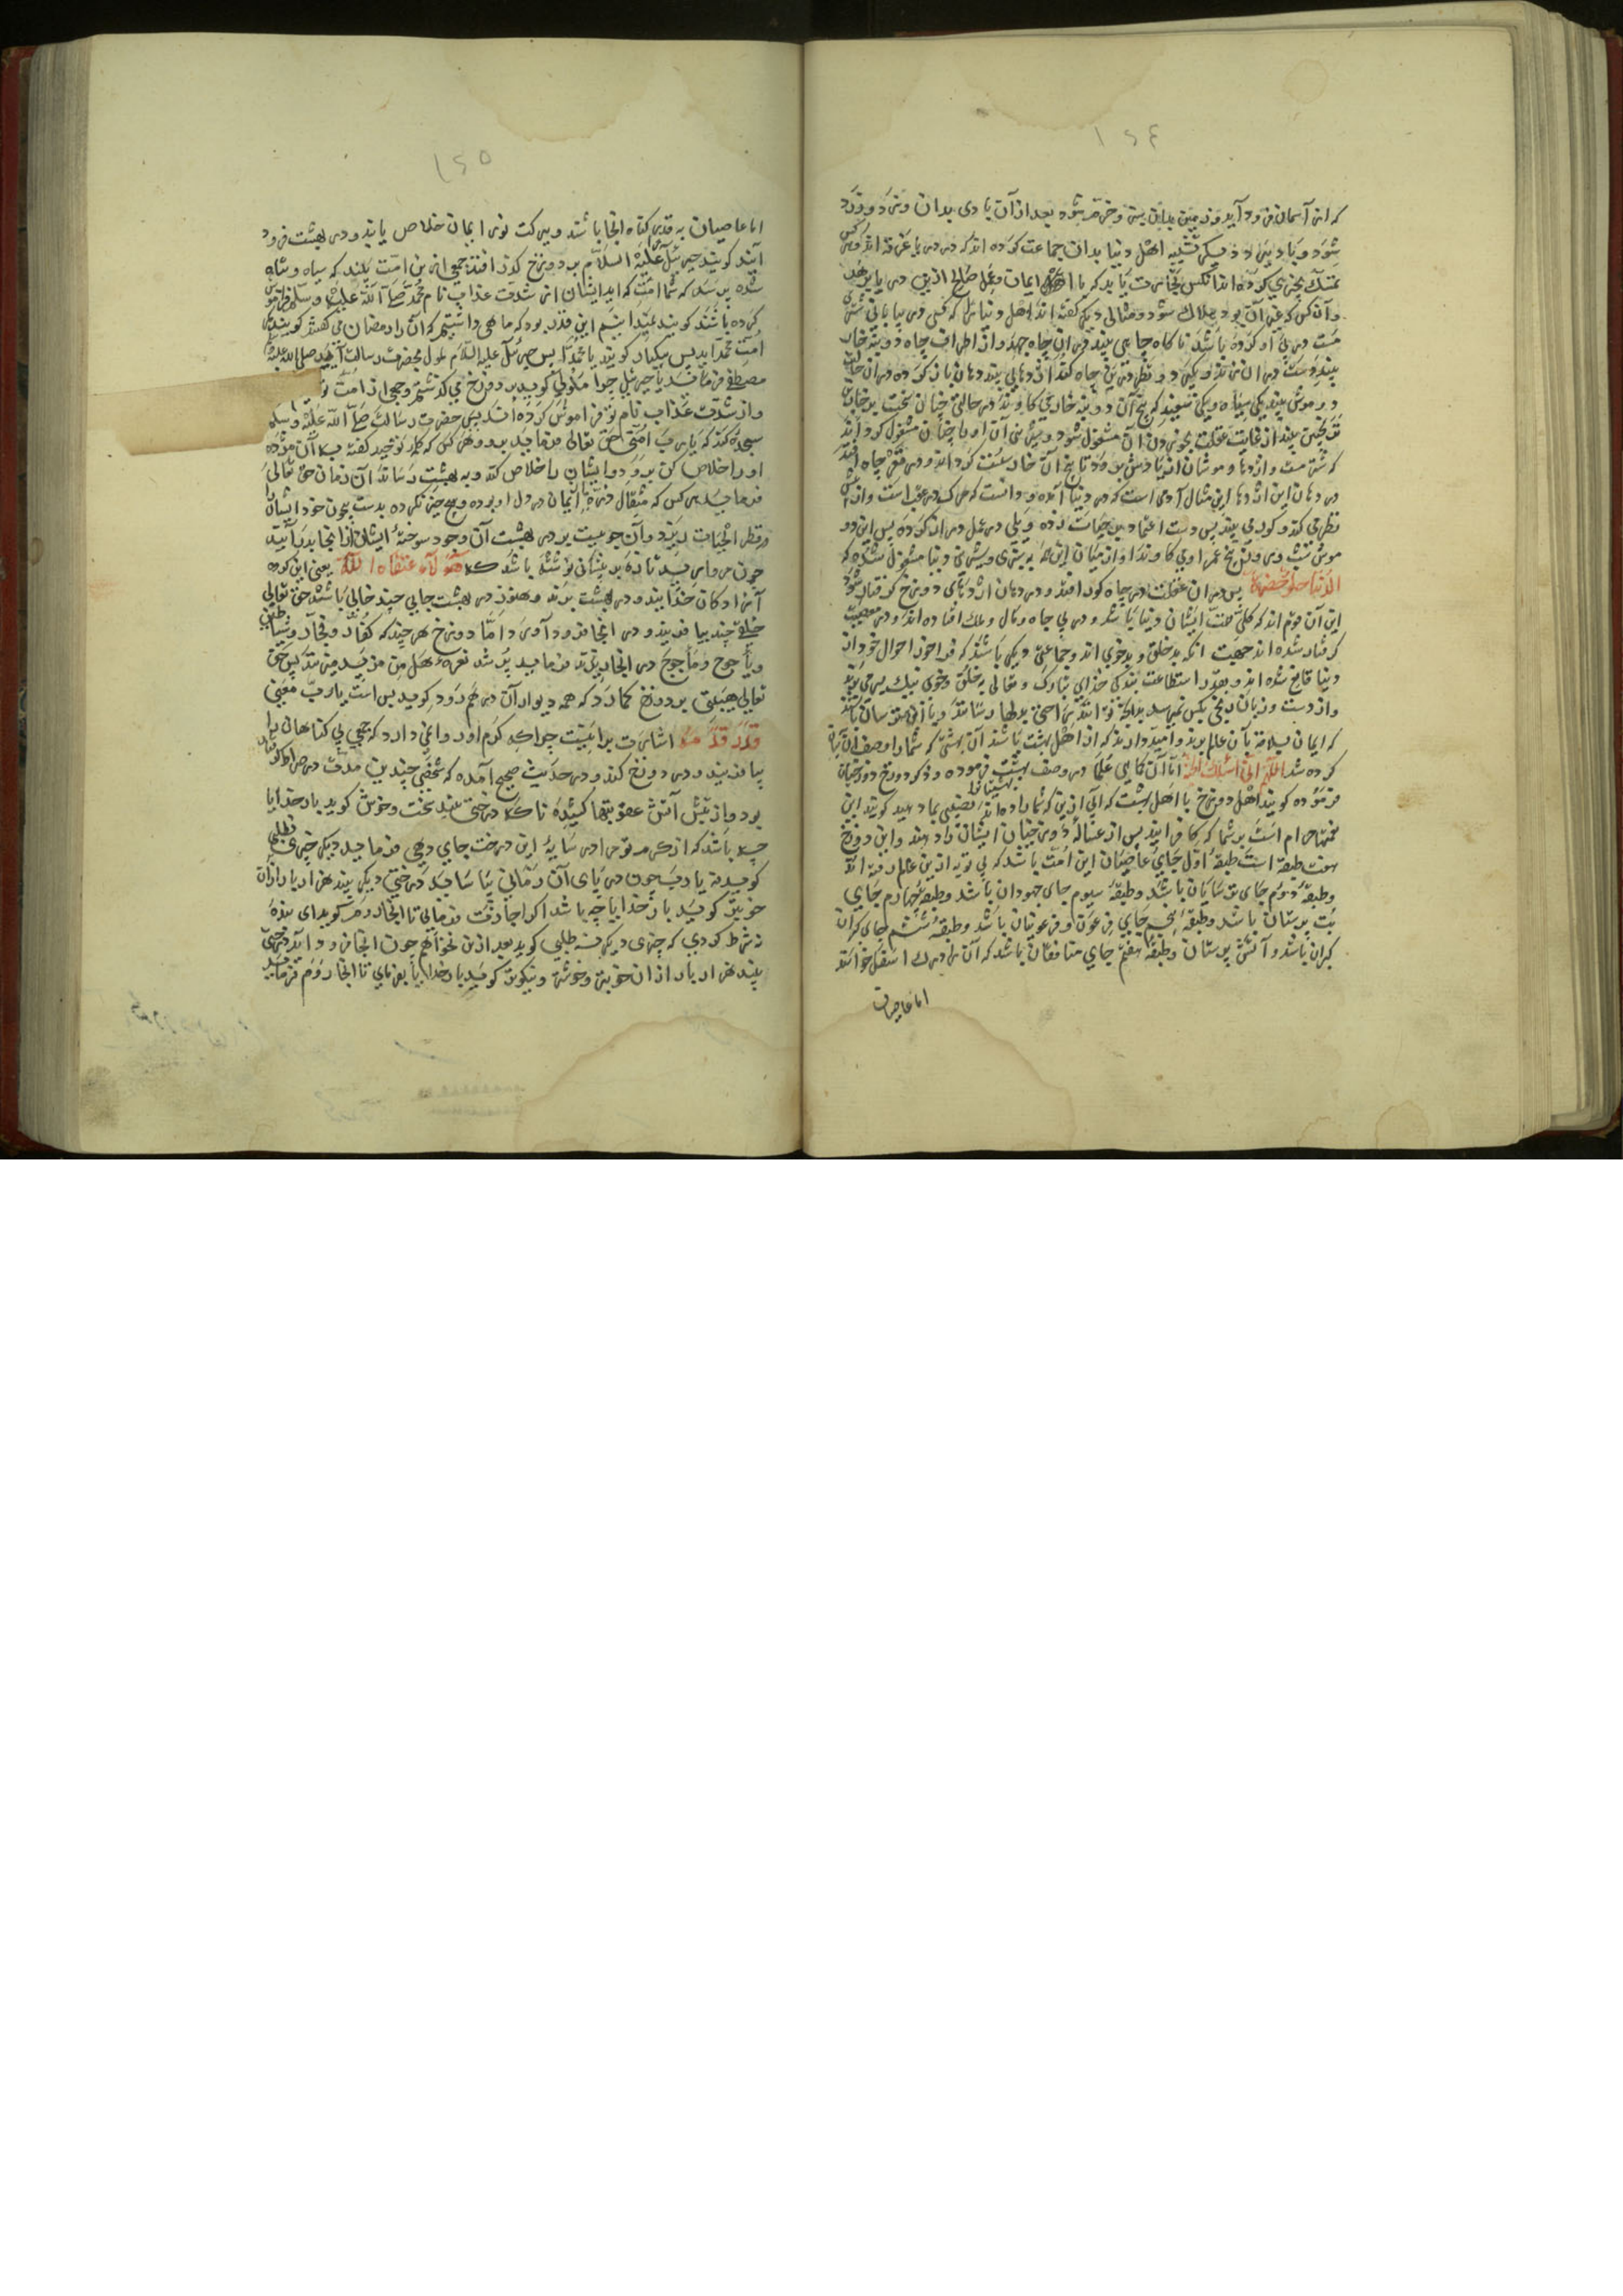 ۱۶۴
که این آسمان فرود آید و زمین بدان یستی و خرم شود بعد از آن با دی بدان وزد و زرد
شود و باد ببرد و دیگر تشبیه اهل دنیا بدان جماعت کرده اند که در دریا غرقه اند هر کس
تمسک بچیزی کرده اند آنکس نجات یابد که با ایمان و عمل صالح ازین دریا
و آن کس که غیر آن بود هلاک شود و مثالی دیگر گفته اند اهل دنیا را که کسی در بیابانی شتر
مست در پی او کرده باشد ناگاه چاهی بیند در آن چاه جهد و از اطراف چاه دو بته خار
بیند و دست در آن زند و یکی دو نظر در تک چاه کند اژدهایی بیند دهان باز کرده
و دو موش بیند یکی سیاه و یکی سفید که بیخ آن دو بته خار می کاوند در حالتی چنان سخت بر خار
ترنجبین بیند از غایت غفلت بخوردن آن مشغول شود و شیرینی آن او را چنان مشغول گرداند
که شتر مست و اژدها و موشان از یادش برود تا بیخ آن خار سست گردد و در قعر چاه افتد
در دهان این اژدها این مثال آدمی است که در دنیا آمده و دانست که مرگ در عقب است و از پس
نظر می کند و گور می بیند پس دست اعتماد بر حیات زده و پای در عمل دراز کرده پس این دو
موش شب و روز بیخ عمر او می کاوند او از میان این همه به شیرینی دنیا مشغول شده که
الدنیا حلوة خضرة پس در آن غفلت در چاه گور افتد و در دهان اژدهای دوزخ گرفتار شود
این آن قوم اند که کلی همت ایشان دنیا باشد و در پی جاه و مال و ملک افتاده اند و در معصیت
گرفتار شده اند جهت آنکه بدخلق و بدخوی اند و جماعتی دیگر باشند که فراخور احوال خود از
دنیا قانع شده اند و بقدر استطاعت بندگی خدای تبارک و تعالی به خلق و خوی نیک بسر می برند
و از دست و زبان رنجی بکس نمی رسد بلکه تا توانند راحتی بدلها رسانند و یا آن ترسان باشند
که ایمان بسلامت بآن عالم برند و امیدوارند که از اهل بهشت باشند آن بهشتی که شما را وصف آن بیان
کرده شد اللهم انی اسئلک الجنة اما آن کاهی علما در وصف بهشت فرموده و ذکر دوزخ و دوزخیان
فرموده گویند اهل دوزخ با اهل بهشت که آبی ازین که شما داده اند نصیبی بما دهید گویند این
نعمتها حرام است بر شما که کافرانید پس از غساله دوزخیان ایشان را دهند و این دوزخ
هفت طبقه است طبقه اول جای عاصیان این امت باشد که بی توبه ازین عالم رفته اند
و طبقه دوم جای ترسایان باشد و طبقه سیوم جای جهودان باشد و طبقه چهارم جای
بت پرستان باشد و طبقه پنجم جای فرعون و فرعونیان باشد و طبقه ششم جای گبران
گبران باشد و آتش پرستان و طبقه هفتم جای منافقان باشد که آن را درک اسفل خوانند
اما عاصیان
۱۶۵
اما عاصیان به قدر گناه انجا باشند و ببرکت نور ایمان خلاص یابند و در بهشت فرود
آیند گویند جبرئیل علیه السلام بر دوزخ گذر افتد جمعی ازین امت بیند که سیاه و تباه
شده پرسد که شما امت که اید ایشان از شدت عذاب نام محمد صلی الله علیه و سلم فراموش
کرده باشند گویند نمیدانیم این قدر بود که ماهی داشتیم که آن را رمضان می گفتند گویند
امت محمد اید پس بیکبار گویند یا محمداه پس جبرئیل علیه السلام ملول بحضرت رسالت آید صلی الله علیه
مصطفی فرماید یا جبرئیل چرا ملولی گوید بر دوزخ می گذشتم و جمعی از امت تو
و از شدت عذاب نام تو فراموش کرده اند پس حضرت رسالت صلی الله علیه و سلم
سجده کند که یا رب امتی حق تعالی فرماید برو و هر کس که کلمه توحید گفته
او را خلاص کن برود و ایشان را خلاص کند و به بهشت رساند آن زمان حق تعالی
فرماید هر کس که مثقال ذره ایمان در دل او بوده و هیچ خیر نکرده بدست بیچون خود ایشان را
در نظر الحیات ریزد و آن جوییست بر در بهشت آن وجود سوخته ایشان از انجا بدر آیند
چون مروارید تازه بر پیشانی نوشته باشد که هؤلاء عتقاء الله یعنی این گروه
آزادگان خدایند و در بهشت برند و هنوز در بهشت جایی چند خالی باشد حق تعالی
خلقی چند بیافریند و در انجا فرود آورد و اما دوزخ هر چند که کفار و فجار و شیاطین
و یأجوج و مأجوج در انجا ریزند فرماید پر شد نعره هل من مزید میزند پس حق
تعالی هیبتی بر دوزخ گمارد که همه دیوار آن در هم رود گوید بس است یا رب معنی
قدر قدمه اشارت بدانیست چرا که کرم او روا نمی دارد که جمعی بی گناهان را
بیافریند و در دوزخ کند و در حدیث صحیح آمده که شخصی چندین مدت در صراط گرفتار
بود و از تپش آتش عقوبتها کشیده تا که درختی بیند سخت و خوش گوید بار خدایا
چه باشد که از کرم تو مرا در سایه این درخت جای دهی فرماید دیگر چیزی نطلبی
گوید نه یا رب چون در پای آن زمانی بیاساید درختی دیگر بیند هزار بار از آن
خوبتر گوید بار خدایا چه باشد اگر اجازت فرمایی تا انجا روم گوید ای بنده
نه شرط کردی که چیزی دیگر نطلبی گوید بعد ازین نخواهم چون انجا فرود آید درختی
بیند هزار بار از آن خوبتر و خوشتر و نیکوتر گوید بار خدایا بفرمای تا انجا روم فرماید